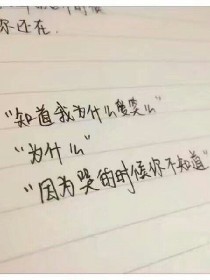 尔还在.
“知道我为什么爱笑么”
“为什么”
“因为哭的时候你不知道”